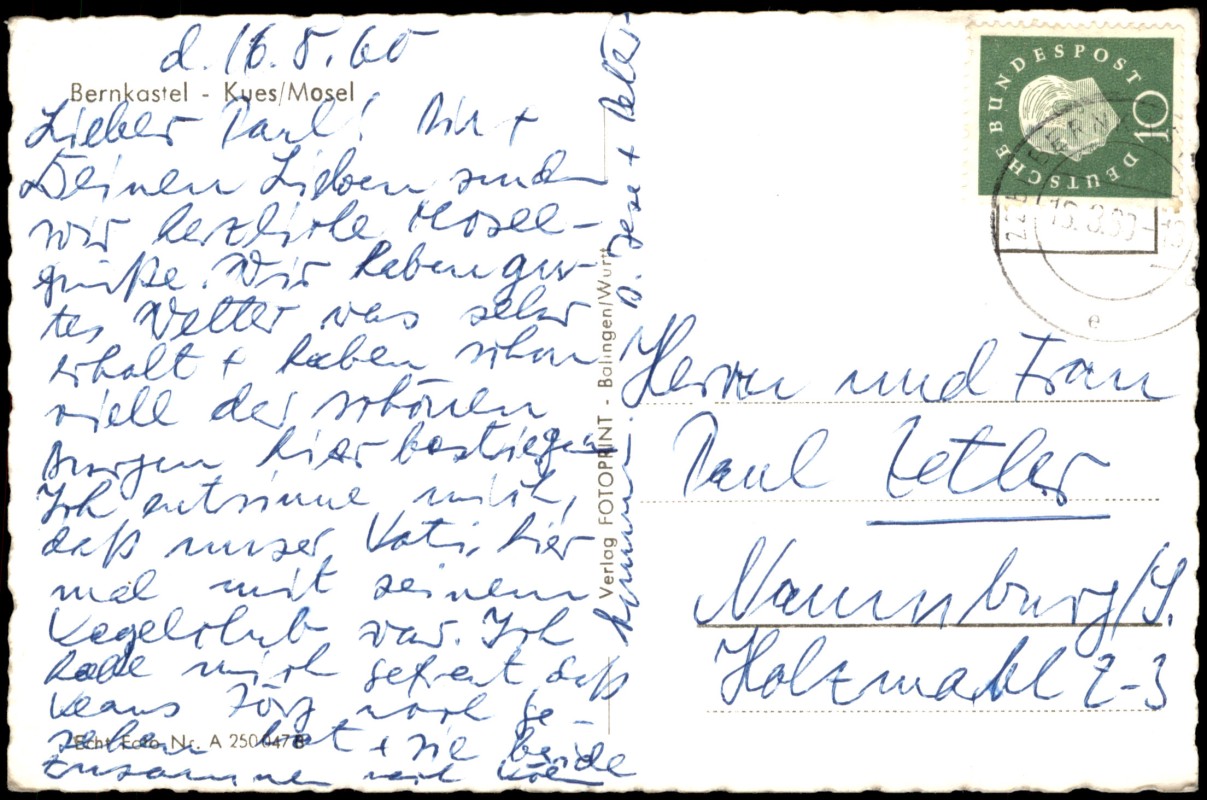 d. 16.8.60
Bernkastel - Kues/Mosel
Lieber Paul! Dir +
Deinen Lieben senden
wir herzliche Mosel-
grüße. Wir haben gu-
tes Wetter was sehr
erholt + haben schon
viele der schönen
Burgen hier bestiegen
Ich entsinne mich,
daß unser Vati hier
mal mit seinem
Kegelclub war. Ich
habe mich gefreut daß
Klaus Jörg noch ge-
sehen hat + sie beide
Echt Foto Nr. A 250 047 B
zusammen nach
kommen.
+ Peter
Verlag FOTOPRINT - Balingen/Württ.
DEUTSCHE BUNDESPOST
10
e
Herrn und Frau
Paul Zetler
Naumburg/S.
Holzmarkt 2-3